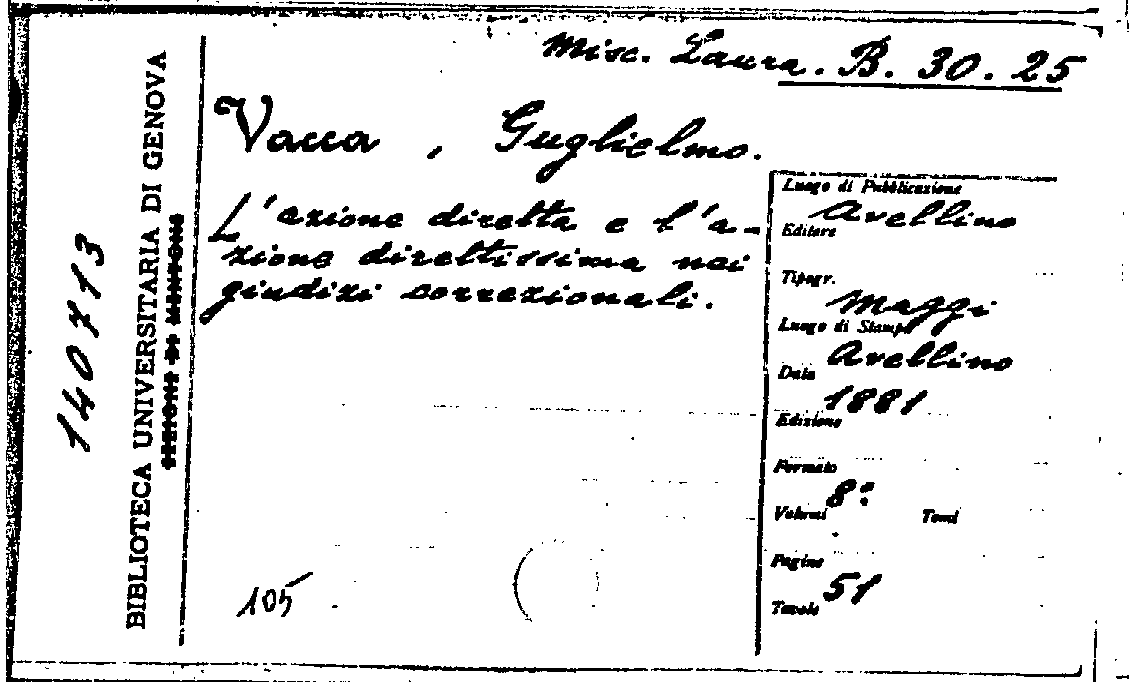 Misc. Laura. B. 30. 25
Vacca, Guglielmo.
L'azione diretta e l'a-
zione direttissima nei
giudizi correzionali.
Luogo di Pubblicazione
Avellino
Editore
Tipogr.
Maggi
Luogo di Stampa
Avellino
Data
1881
Edizione
Formato
8º
Volumi Tomi
Pagine
51
Tavole
105
140713
BIBLIOTECA UNIVERSITARIA DI GENOVA